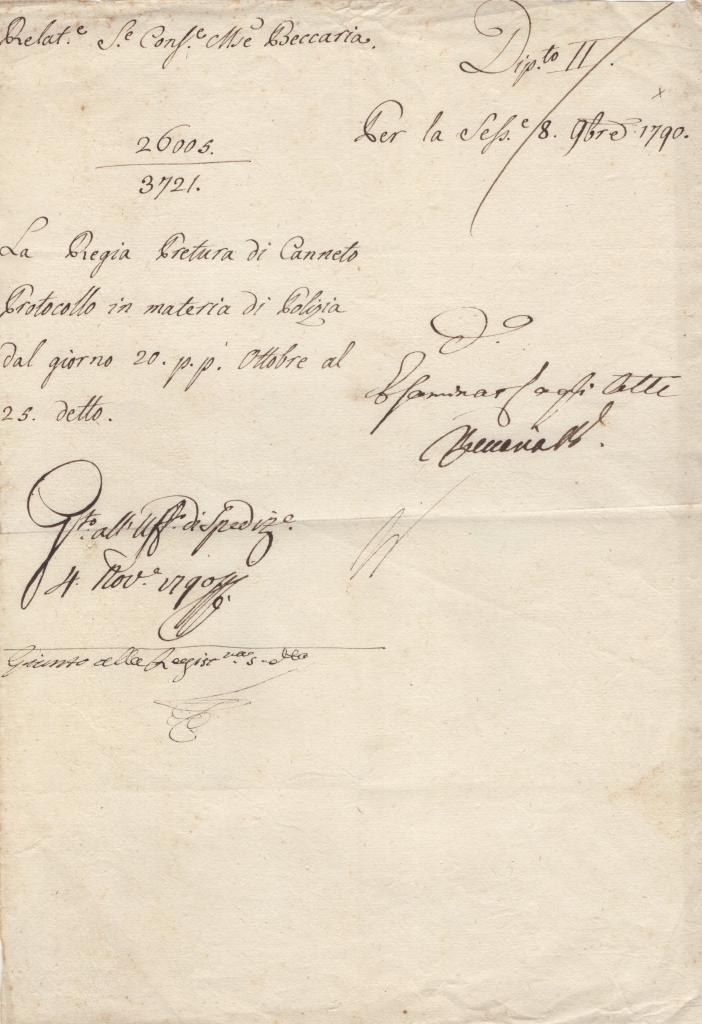 Relat.e S.e Cons.e Mse Beccaria.
Dip.to II.
Per la Sess.e 8. 9bre 1790.
26005.
3721.
La Regia Pretura di Canneto
Protocollo in materia di Polizia
dal giorno 20. p.p. Ottobre al
25. detto.
Esaminar agli Atti
Beccaria
G.to all'Uff.o di Spediz.e
4. Nov.e 1790
Giunto alla Regist.ra 5. d.to